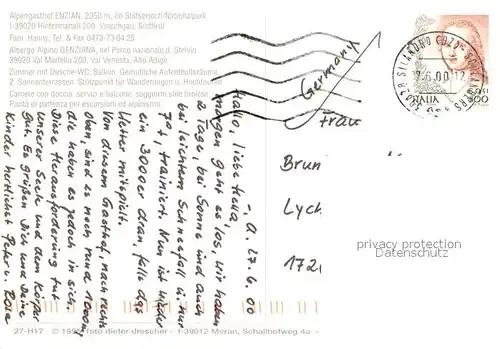 Alpengasthof ENZIAN, 2050 m, im Stilfserjoch-Nationalpark
I-39020 Hintermartell 200, Vinschgau, Südtirol
Fam. Hanny, Tel. & Fax 0473-73 04 25
Albergo Alpino GENZIANA, nel Parco nazionale d. Stelvio
39020 Val Martello 200, Val Venosta, Alto Adige
Zimmer mit Dusche-WC, Balkon. Gemütliche Aufenthaltsräume,
2 Sonnenterrassen. Stützpunkt für Wanderungen u. Hochtouren
Camere con doccia, servizi e balcone, soggiorni stile tirolese.
Punto di partenza per escursioni ed alpinismo.
Germany
ITALIA
800
-, d. 27.6.00
Hallo, liebe Hella,
morgen geht es los, wir haben
2 Tage, bei Sonne und auch
bei leichtem Schneefall unter
70+, trainiert. Nun ist wieder
ein 3000er dran, falls das
Wetter mitspielt.
Von diesem Gasthof, nach rechts
oben, sind es noch rund 1000 m,
die haben es jedoch in sich.
Diese Herausforderung tut
unserer Seele und dem Körper
gut. Es grüßen Dich und Deine
Kinder herzlichst Peter u. Rosa
Frau
Brun
Lych
172
privacy protection
Datenschutz
27-H17 © foto dieter drescher - I-39012 Meran, Schallhofweg 4a